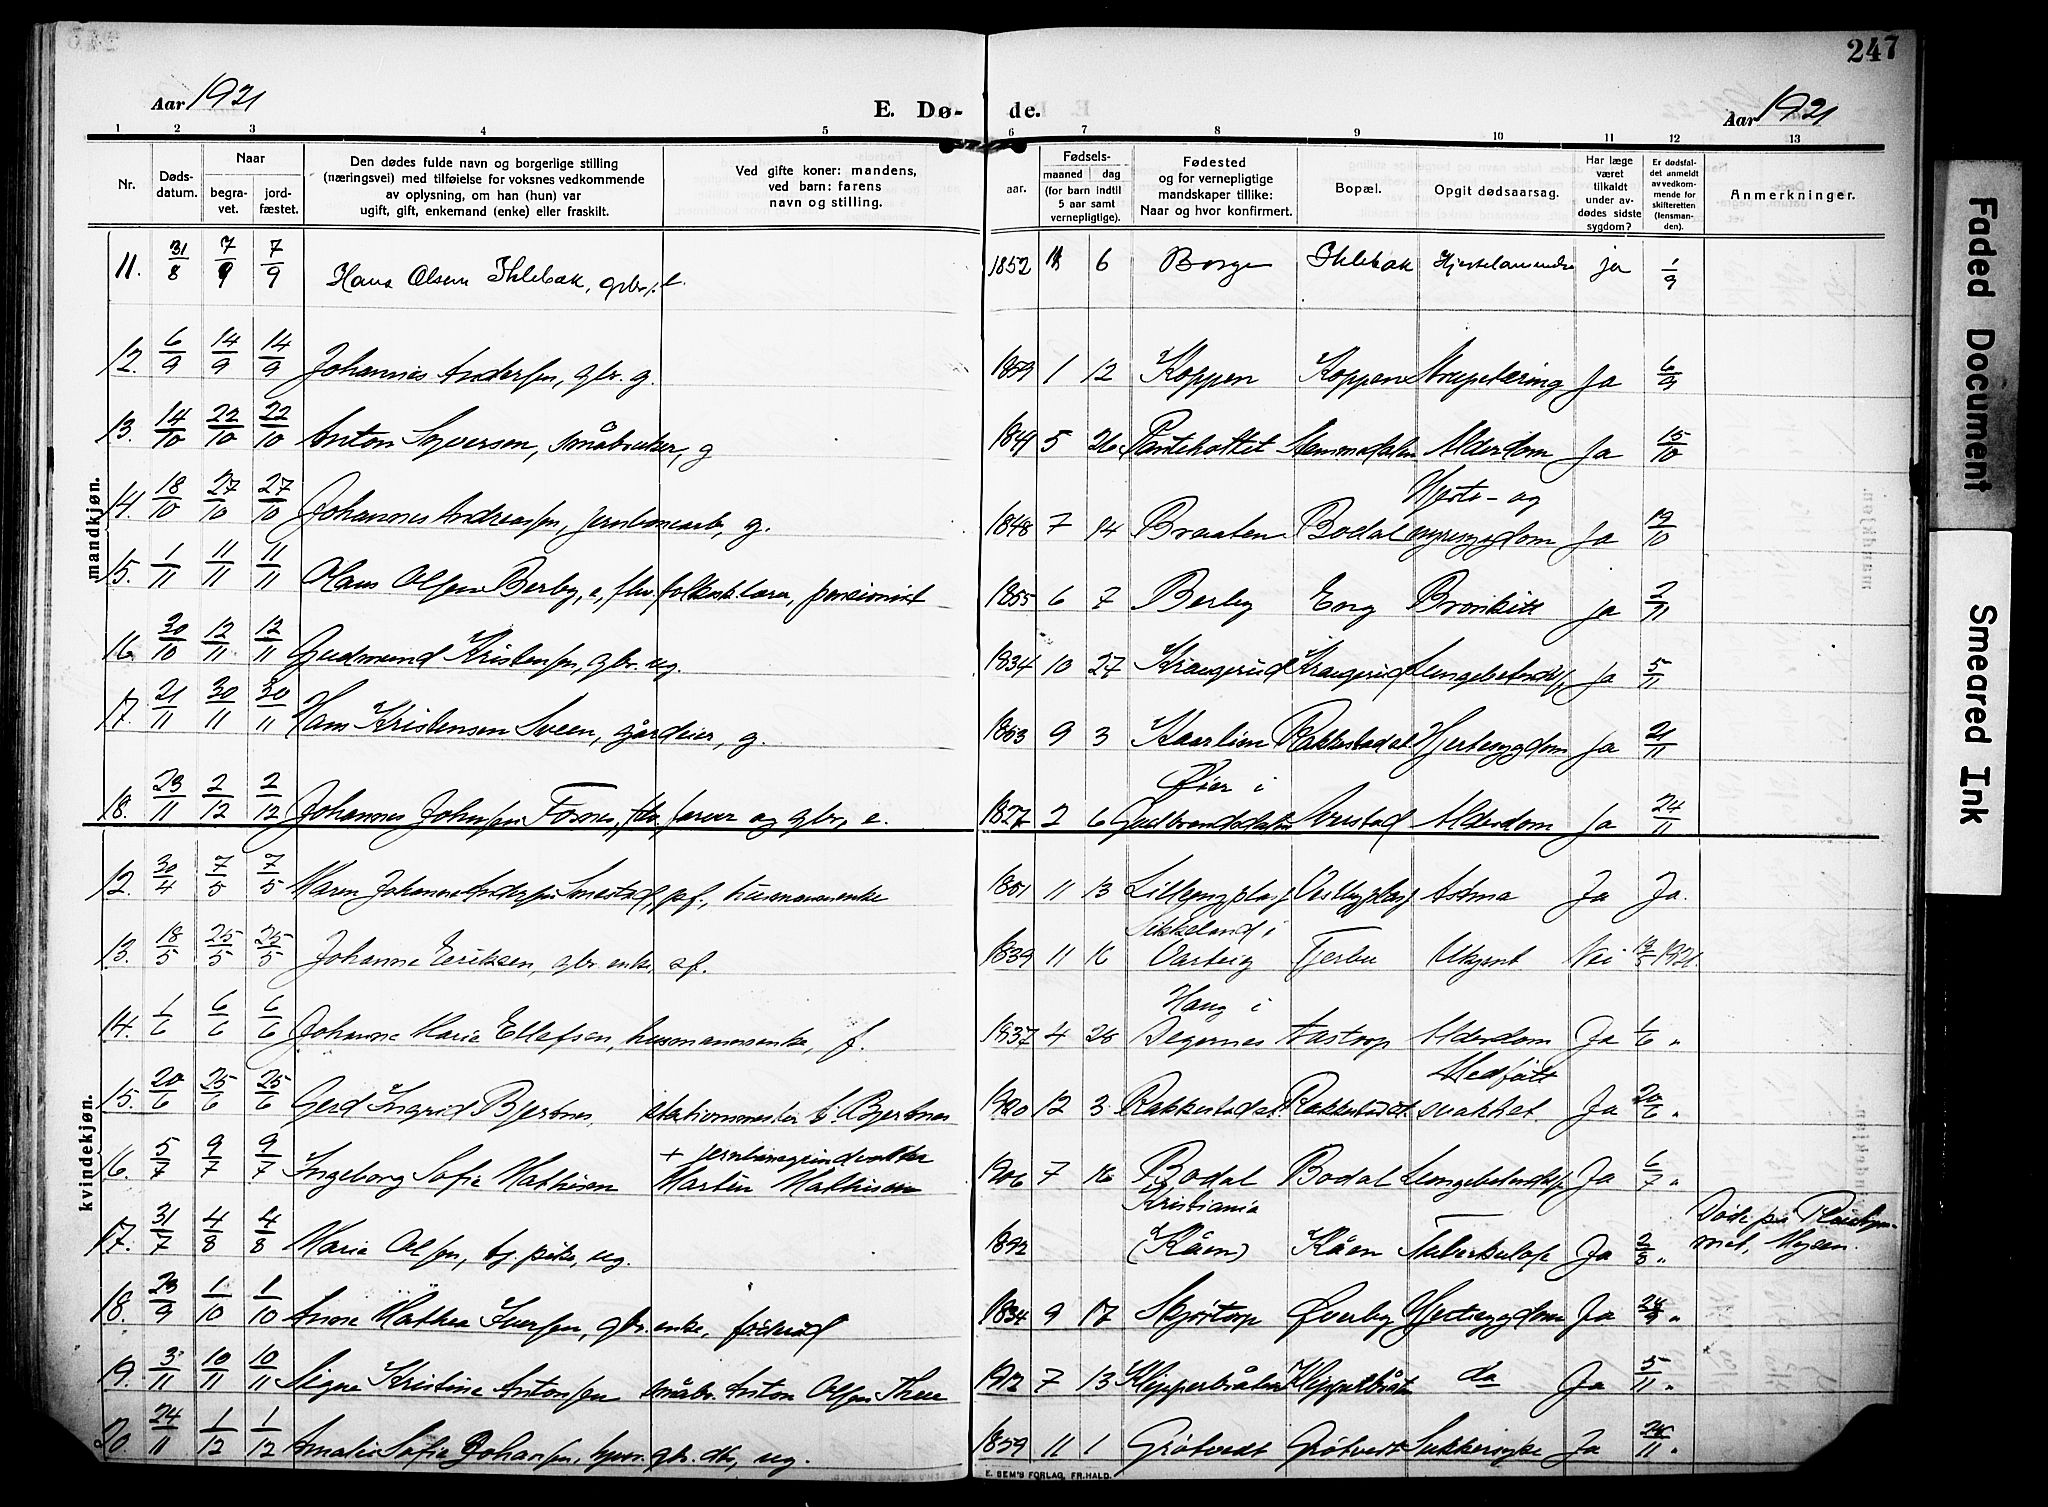 247
Aar 1921
E. Dø-
de.
Aar 1921
1 2 3 4 5 6 7 8 9 10 11 12 13
Nr.
Døds-
datum.
Naar
begra-
vet.
jord-
fæstet.
Den dødes fulde navn og borgerlige stilling
(næringsvei) med tilføielse for voksnes vedkommende
av oplysning, om han (hun) var
ugift, gift, enkemand (enke) eller fraskilt.
Ved gifte koner: mandens,
ved barn: farens
navn og stilling.
Fødsels-
aar.
maaned dag
(for barn indtil
5 aar samt
vernepligtige).
Fødested
og for vernepligtige
mandskaper tillike:
Naar og hvor konfirmert.
Bopæl.
Opgit dødsaarsag.
Har læge
været
tilkaldt
under av-
dødes sidste
sygdom?
Er dødsfal-
det anmeldt
av vedkom-
mende for
skifteretten
(lensman-
den).
Anmerkninger.
mandkjøn.
11. 31/8 7/9 7/9 Hans Olsen Ihlebæk, gbr. 1852 6 Borge Ihlebæk ja 1/9
12. 6/9 14/9 14/9 Johannes Andersen, gbr. g. 1859 1 12 Koppen Koppen Ja 6/9
13. 14/10 22/10 22/10 Anton Syversen, småbruker, g 1849 5 26 Alderdom Ja 15/10
14. 18/10 27/10 27/10 Johannes Andreassen, jernbanearb, g. 1848 7 14 Braaten Bodal Hjerte- og nyresygdom Ja 19/10
15. 1/11 11/11 11/11 Hans Olsen Berby, e, fhv. folkesk.lærer, pensionist 1855 6 7 Berby Eng Bronkitt Ja 2/11
16. 30/10 12/11 12/11 Gudmund Kristensen, gbr. ug. 1834 10 27 Krangerud Krangerud Lungebetendelse Ja 5/11
17. 21/11 30/11 30/11 Hans Kristensen Sveen, gårdeier, g. 1853 9 3 Kaarlien Rakkestad st Hjertesygdom Ja 21/11
18. 23/11 2/12 2/12 Johannes Johnsen Fosnes, fhv. farver og gbr, e. 1827 2 6 Øier i Gudbrandsdalen Alderdom Ja 24/11
kvindekjøn.
12. 30/4 7/5 7/5 Maren Johanne Andersen Smestad, pf., husmannsenke 1851 11 13 Astma Ja Ja.
13. 18/5 25/5 25/5 Johanne Eriksen, gbr. enke, af. 1839 11 16 Sikkeland i Varteig Fjerbu Ukjent Nei 19/5 1921.
14. 1/6 6/6 6/6 Johanne Maria Ellefsen, husmannsenke, f. 1837 4 28 Haug i Degernes Aastorp Alderdom Ja 1/6 "
15. 20/6 25/6 25/6 Gerd Ingrid Bjertnes, stationsmester Bjertnes 1920 12 3 Rakkestad st. Rakkestad st. Medfødt svakhet. Ja 20/6 "
16. 5/7 9/7 9/7 Ingeborg Sofie Mathisen + jernbanegrindvokter Martin Mathisen 1906 7 16 Bodal Bodal Lungebetendelse Ja 6/7 "
17. 31/7 4/8 4/8 Maria Olsen, tj. pike, ug. 1892 Kristiania (Kåen) Kåen Tuberkulose Ja 2/8 " Døde på Pleiehjemmet, Mysen.
18. 23/9 1/10 1/10 Anne Mathea Iversen, gbr. enke, føderåd 1834 9 17 Skjørtorp Øverby Hjertesygdom Ja 28/9 "
19. 3/11 10/11 10/11 Signe Kristine Antonsen småbr. Anton Olsen 1912 7 13 Klepperbråten Klepperbråten do Ja 5/11 "
20. 24/11 1/12 1/12 Amalie Sofie Johansen, hjemv. gbr. dtr, ug. 1859 11 1 Grøtvedt Grøtvedt Sukkersyke Ja 26/11 "
E. SEM'S FORLAG, FR.HALD.
Faded Document
Smeared Ink